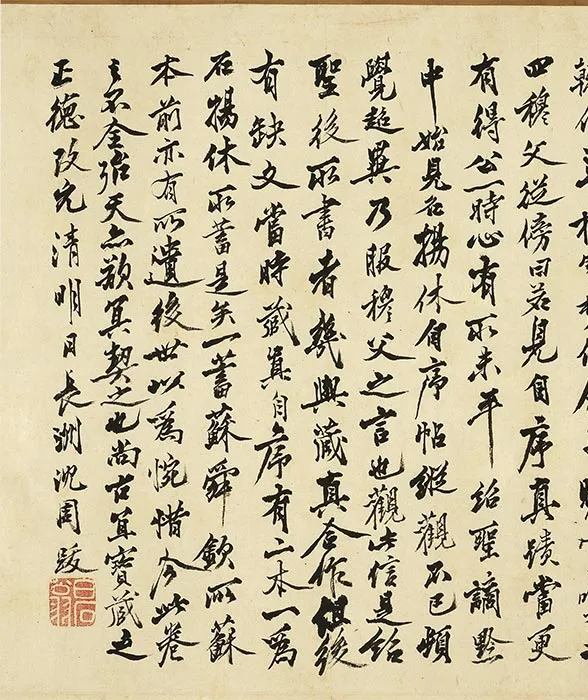 四穆父從傍曰若見自序真蹟當更
有得公一時心有所未平紹聖謫黔
中始見石揚休自序帖縱觀不已頓
覺超異乃服穆父之言也觀此信是紹
聖後所書者幾與藏真合作但後
有缺文當時藏真自序有二本一為
石揚休所蓄是矣一蓄蘇舜欽所蘇
本前亦有所遺後世以為惋惜今此卷
之不全殆天亦欲冥契之也尚古宜寶藏之
正德改元清明日長洲沈周跋
白石翁